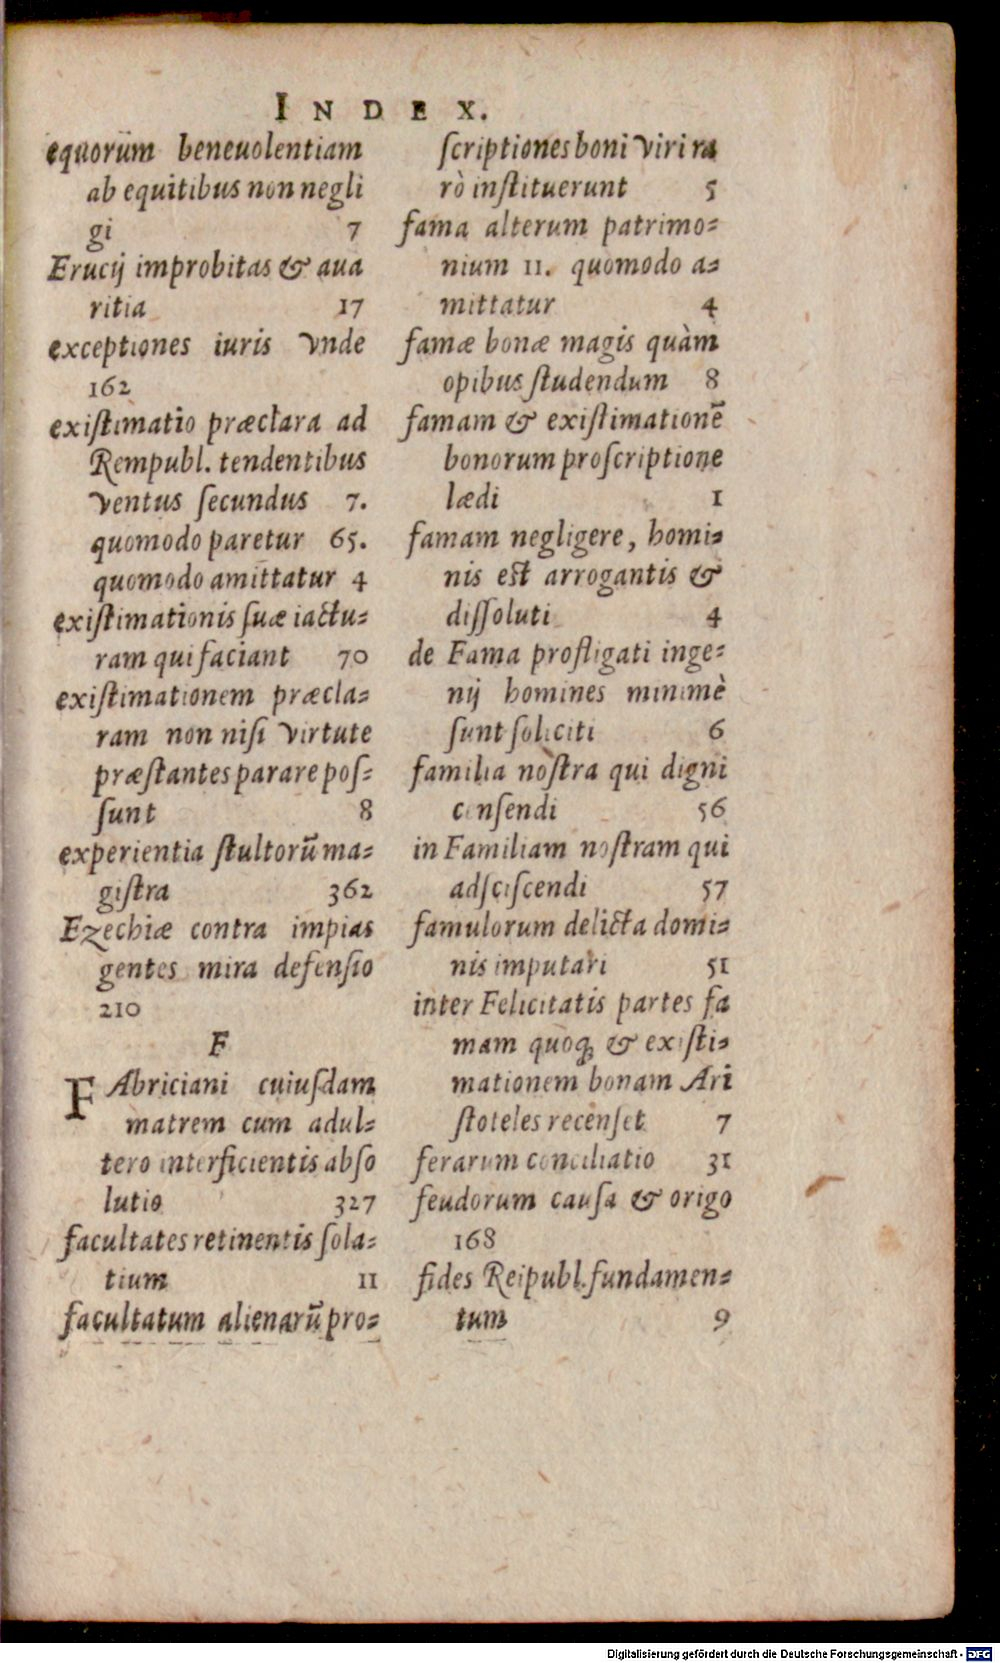 INDEX.
equorum beneuolentiam
ab equitibus non negli
gi 7
Erucij improbitas & aua
ritia 17
exceptiones iuris vnde
162
existimatio præclara ad
Rempubl. tendentibus
ventus secundus 7.
quomodo paretur 65.
quomodo amittatur 4
existimationis suæ iactu-
ram qui faciant 70
existimationem præcla-
ram non nisi virtute
præstantes parare pos-
sunt 8
experientia stultorū ma-
gistra 362
Ezechiæ contra impias
gentes mira defensio
210
F
FAbriciani cuiusdam
matrem cum adul-
tero interficientis abso
lutio 327
facultates retinentis sola-
tium 11
facultatum alienarū pro-
scriptiones boni viri ra
rò instituerunt 5
fama alterum patrimo-
nium 11. quomodo a-
mittatur 4
famæ bonæ magis quàm
opibus studendum 8
famam & existimationē
bonorum proscriptione
lædi 1
famam negligere, homi-
nis est arrogantis &
dissoluti 4
de Fama profligati inge-
nij homines minimè
sunt soliciti 6
familia nostra qui digni
censendi 56
in Familiam nostram qui
adsciscendi 57
famulorum delicta domi-
nis imputari 51
inter Felicitatis partes fa
mam quoq; & existi-
mationem bonam Ari
stoteles recenset 7
ferarum conciliatio 31
feudorum causa & origo
168
fides Reipubl. fundamen-
tum 9
Digitalisierung gefördert durch die Deutsche Forschungsgemeinschaft - DFG